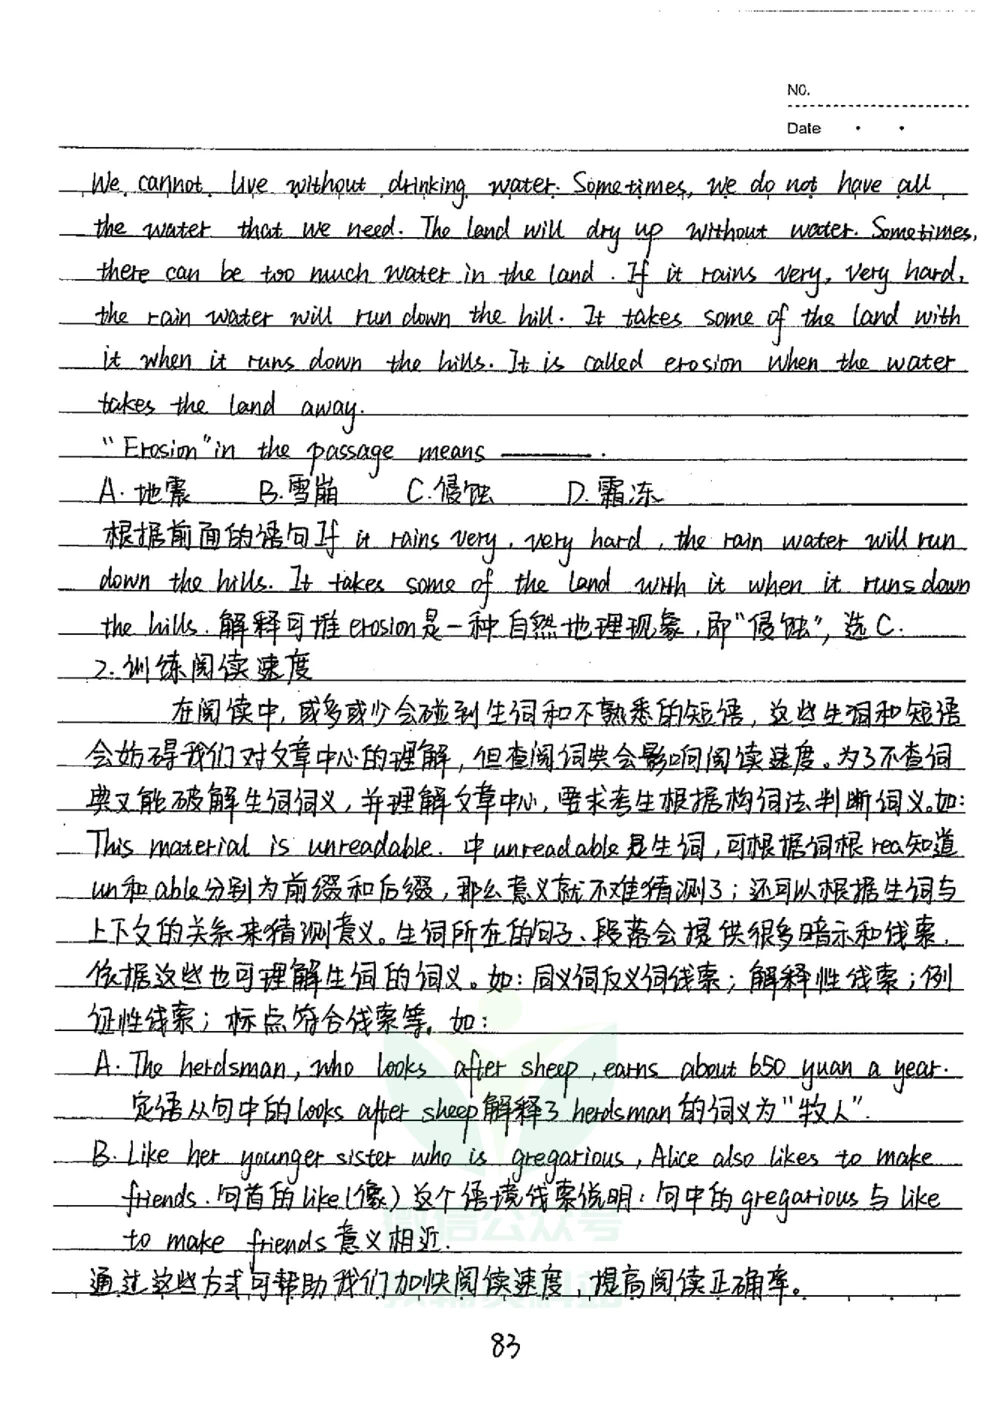 NO.
Date
We cannot live without drinking water. Sometimes, we do not have all
the water that we need. The land will dry up without water. Sometimes,
there can be too much water in the land. If it rains very, very hard,
the rain water will run down the hill. It takes some of the land with
it when it runs down the hills. It is called erosion when the water
takes the land away.
"Erosion" in the passage means ———.
A. 地震 B. 雪崩 C. 侵蚀 D. 霜冻
根据前面的语句If it rains very, very hard, the rain water will run
down the hills. It takes some of the land with it when it runs down
the hills. 解释可推erosion是一种自然地理现象,即"侵蚀",选C.
2. 训练阅读速度
在阅读中,或多或少会碰到生词和不熟悉的短语,这些生词和短语
会妨碍我们对文章中心的理解,但查阅词典会影响阅读速度。为了不查词
典又能破解生词词义,并理解文章中心,要求考生根据构词法判断词义。如:
This material is unreadable. 中unreadable是生词,可根据词根rea知道
un和able分别为前缀和后缀,那么意义就不难猜测了;还可以根据生词与
上下文的关系来猜测意义。生词所在的句子、段落会提供很多暗示和线索,
依据这些也可理解生词的词义。如:同义词反义词线索;解释性线索;例
证性线索;标点符合线索等。如:
A. The herdsman, who looks after sheep, earns about 650 yuan a year.
定语从句中的looks after sheep解释了herdsman的词义为"牧人".
B. Like her younger sister who is gregarious, Alice also likes to make
friends. 句首的like(像)这个语境线索说明:句中的gregarious与like
to make friends意义相近.
通过这些方式可帮助我们加快阅读速度,提高阅读正确率。
83